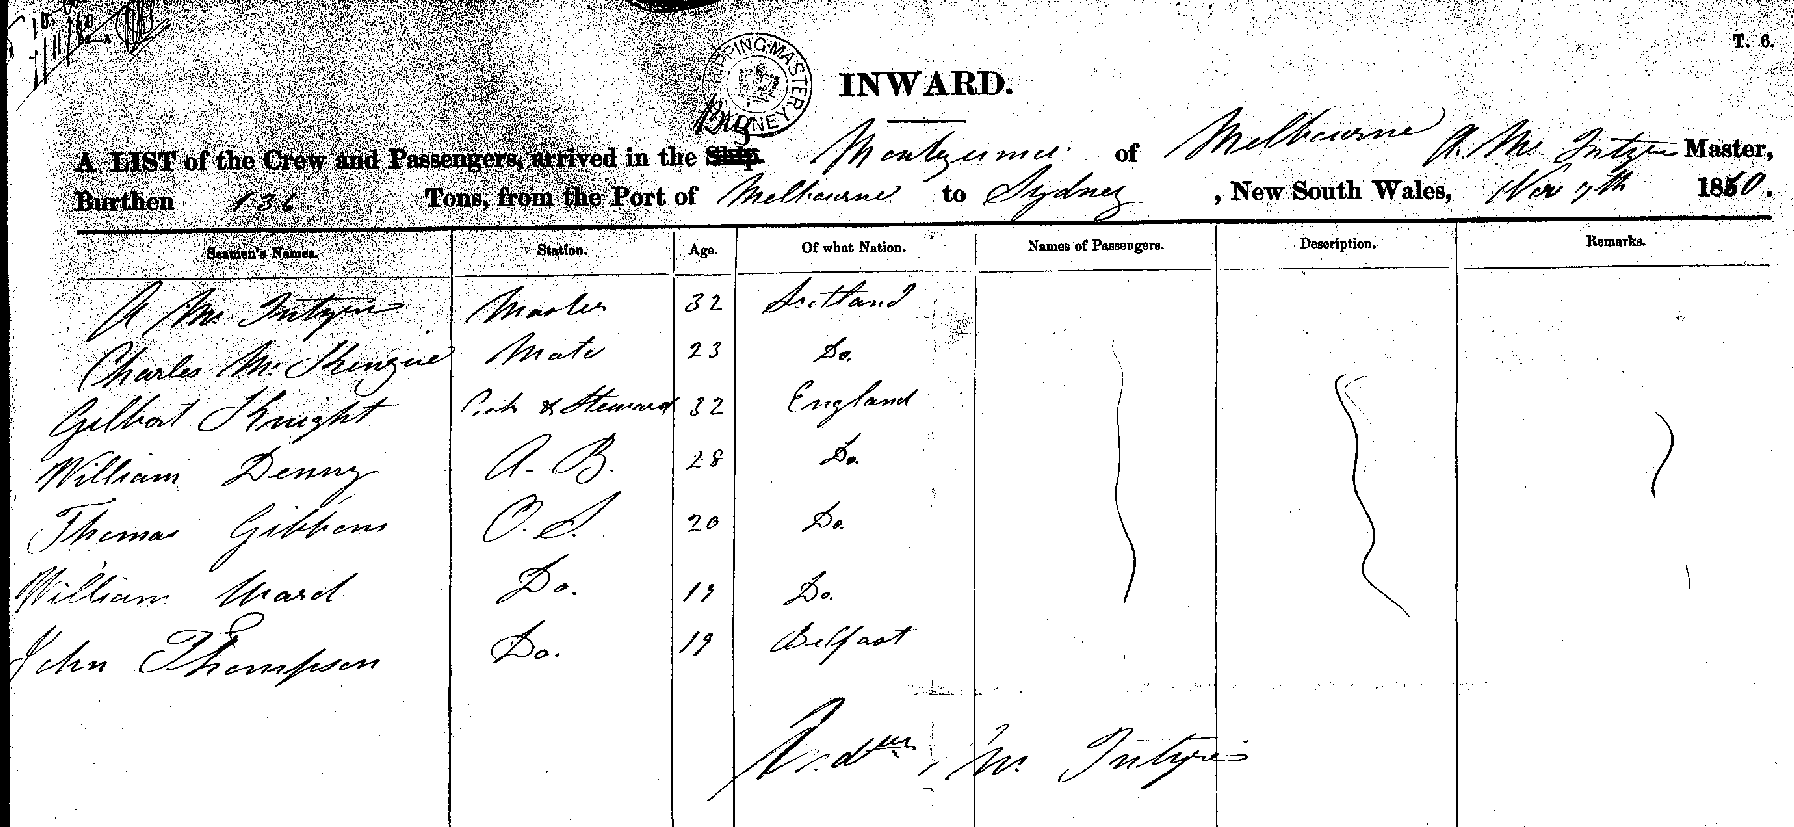 T. 6.
SHIPPING MASTER SYDNEY
INWARD.
Brig
A LIST of the Crew and Passengers, arrived in the Ship. Montezuma of Melbourne A. Mc Intyre Master,
Burthen 136 Tons, from the Port of Melbourne to Sydney, New South Wales, Nov 7th 1860.
Seamen's Names. Station. Age. Of what Nation. Names of Passengers. Description. Remarks.
A Mc Intyre Master 32 Scotland
Charles McKenzie Mate 23 Do.
Gilbert Knight Cook & Steward 32 England
William Denny A. B. 28 Do.
Thomas Gibbons O. S. 20 Do.
William Ward Do. 19 Do.
John Thompson Do. 19 Belfast
Andw Mc Intyre